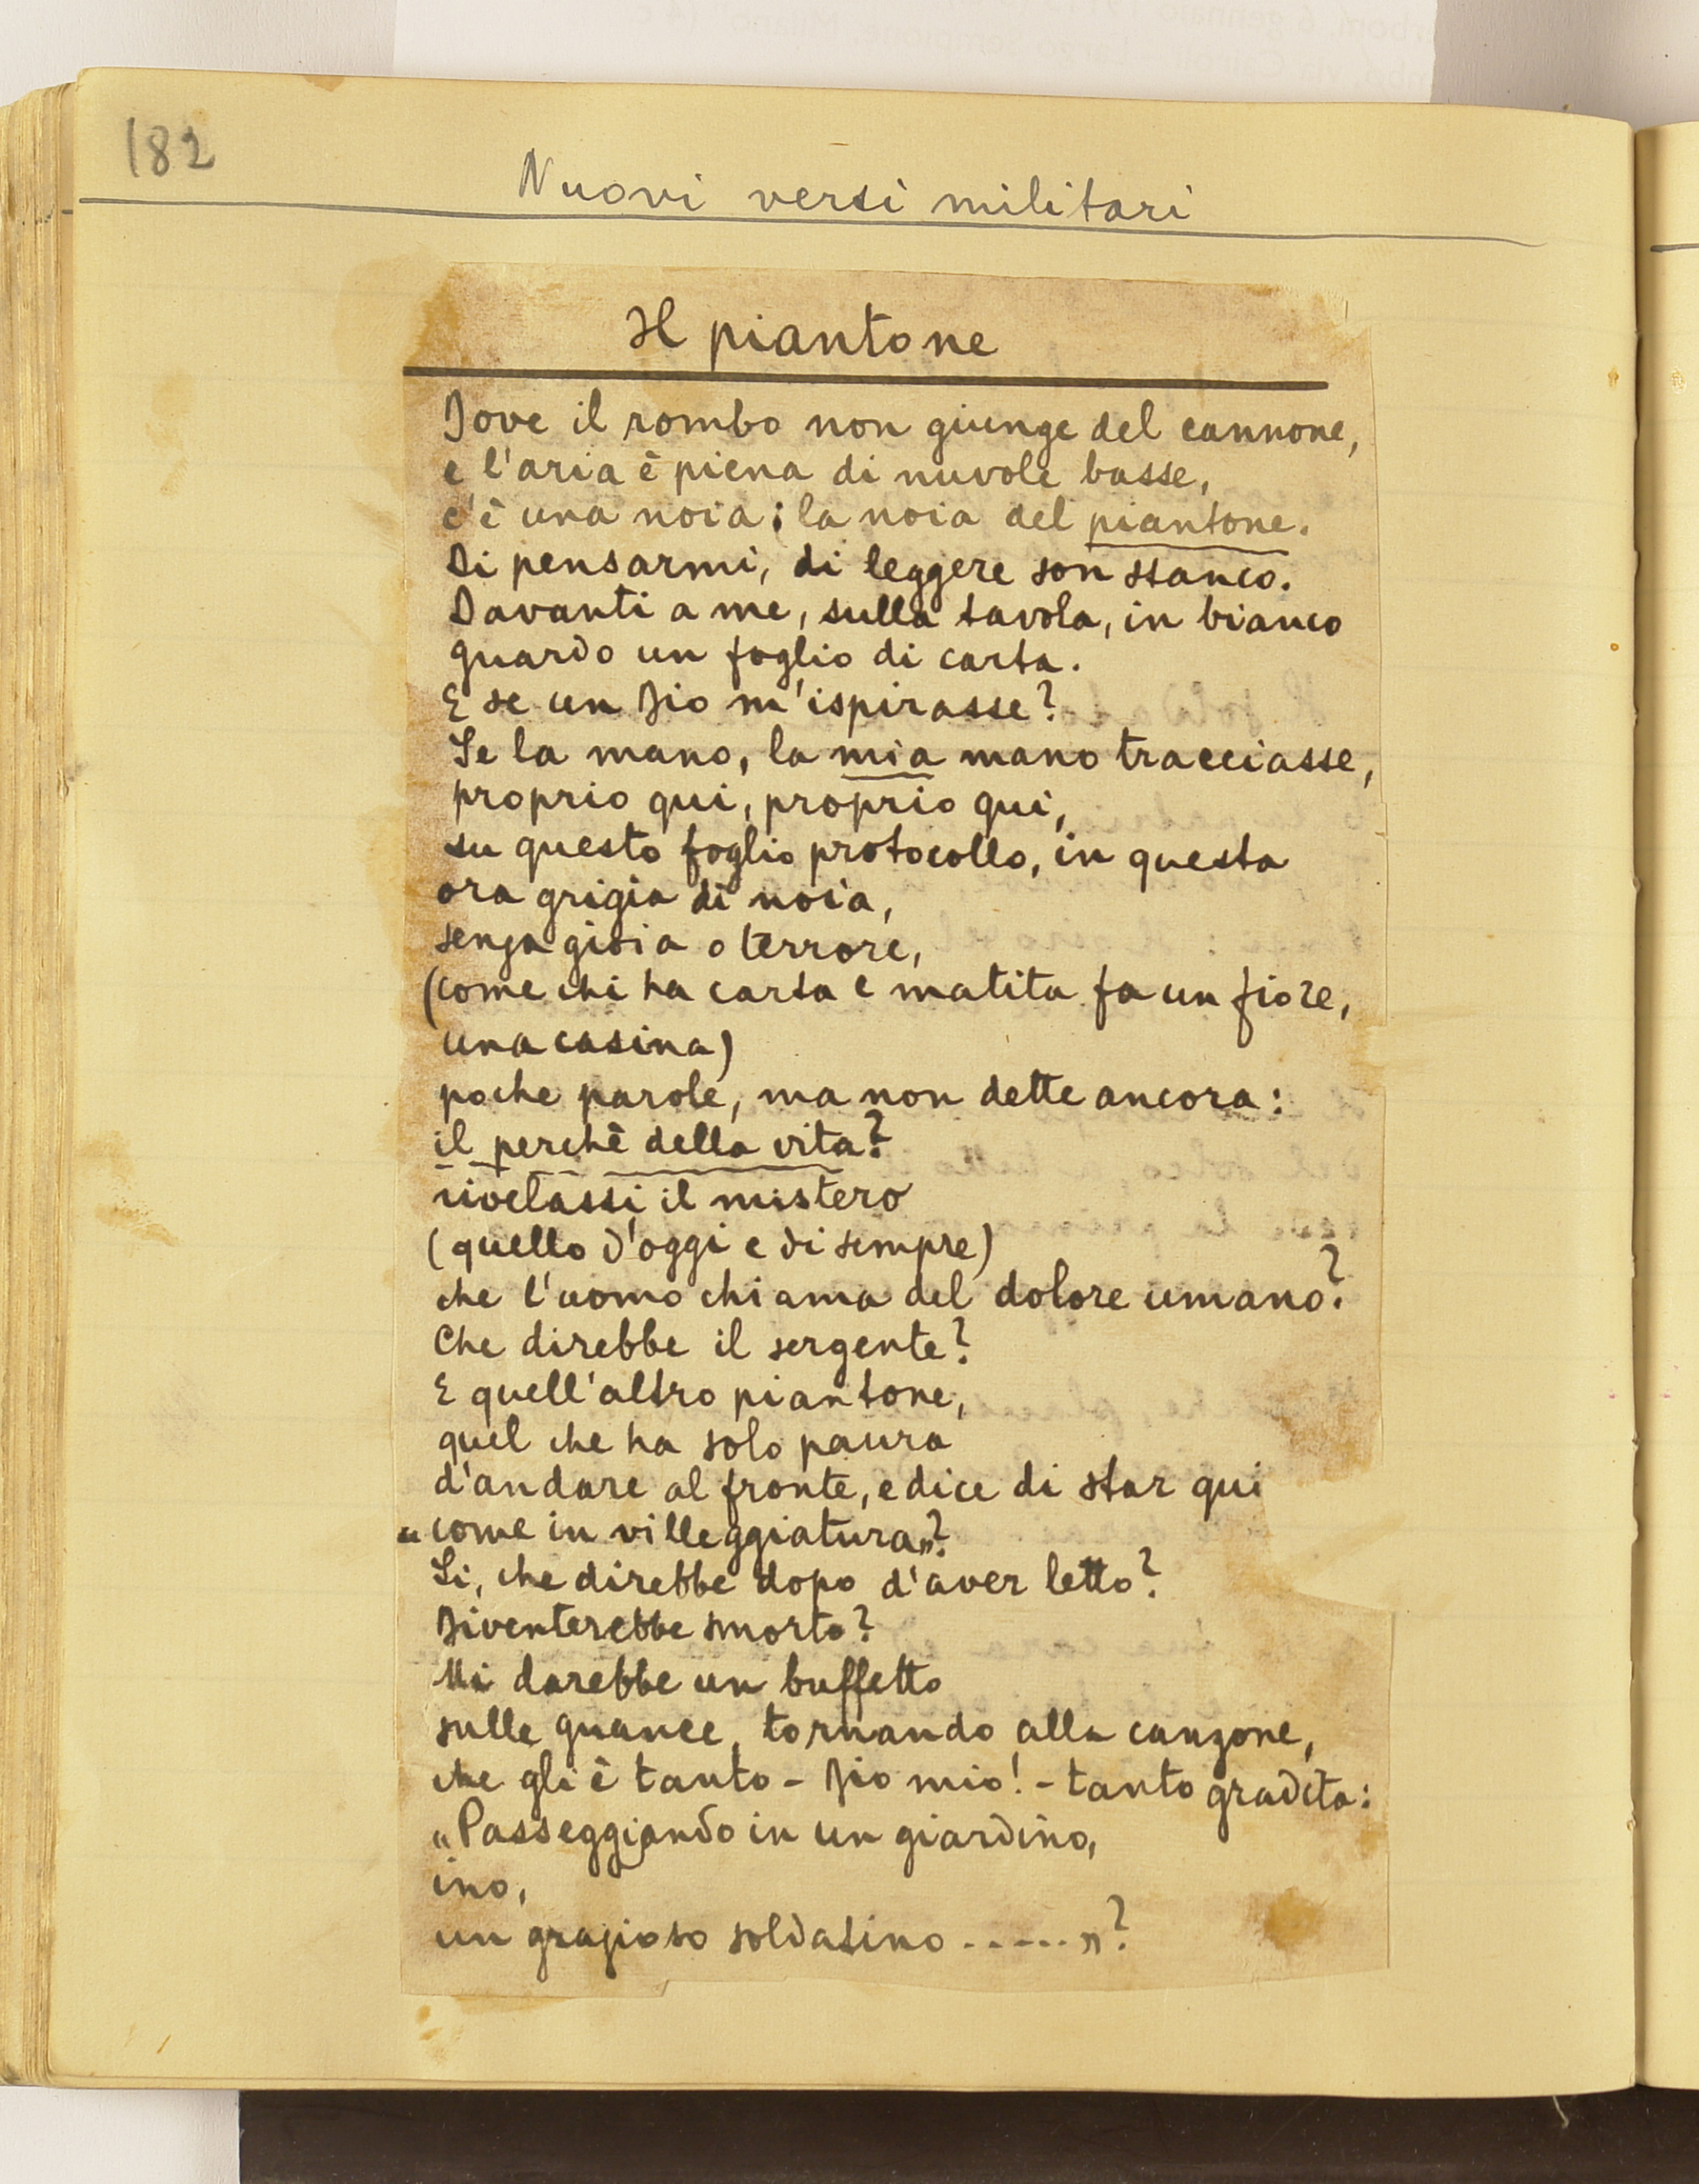 182
Nuovi versi militari
Il piantone
Dove il rombo non giunge del cannone,
e l'aria è piena di nuvole basse,
c'è una noia; la noia del piantone.
Di pensarmi, di leggere son stanco.
Davanti a me, sulla tavola, in bianco
guardo un foglio di carta.
E se un Dio m'ispirasse?
Se la mano, la mia mano tracciasse,
proprio qui, proprio qui,
su questo foglio protocollo, in questa
ora grigia di noia,
senza gioia o terrore,
(come chi ha carta e matita fa un fiore,
una casina)
poche parole, ma non dette ancora:
il perchè della vita?
rivelassi il mistero
(quello d'oggi e di sempre)
che l'uomo chiama del dolore umano?
Che direbbe il sergente?
E quell'altro piantone,
quel che ha solo paura
d'andare al fronte, e dice di star qui
"come in villeggiatura"?
Si, che direbbe dopo d'aver letto?
Diventerebbe smorto?
Mi darebbe un buffetto
sulle guance, tornando alla canzone,
che gli è tanto - Dio mio! - tanto gradita:
"Passeggiando in un giardino,
ino,
un grazioso soldatino ......"?